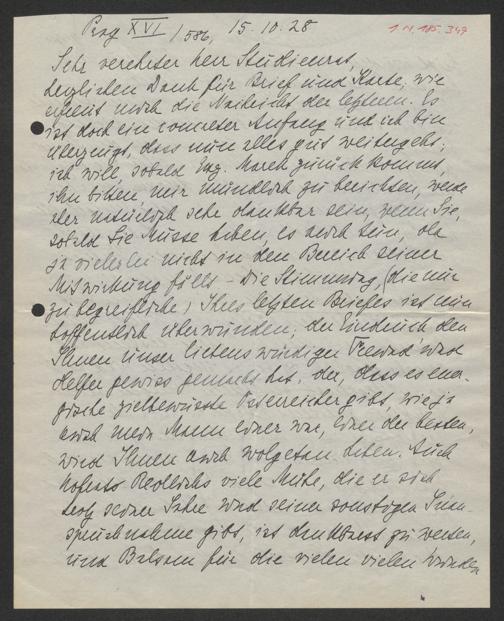 Prag XVI /586, 15.10.28
1.N. 185.349
Sehr verehrter Herr Studienrat,
herzlichen Dank für Brief und Karte, wie
erfreut mich die Nachricht der letzten. Es
ist doch ein concreter Anfang und ich bin
überzeugt, dass nun alles gut weitergeht;
ich will, sobald Ing. March zurück kommt,
ihn bitten, mir mündlich zu berichten, werde
aber natürlich sehr dankbar sein, wenn Sie,
sobald Sie Musse haben, es auch tun, da
ja vielerlei nicht in den Bereich seiner
Mitwirkung fällt – Die Stimmung, (die nur
zu begreifliche) Ihres letzten Briefes ist nun
hoffentlich überwunden; der Eindruck den
Ihnen unser liebenswürdiger Freund und
Helfer gewiss gemacht hat, der, dass es ener-
gische zielbewusste Oesterreicher gibt, wie ja
auch mein Mann einer war, einer der besten,
wird Ihnen auch wolgetan haben. Auch
Hofrats viele Mühe, die er sich
trotz seiner Jahre und seiner sonstigen Inan-
spruchnahme gibt, ist dankbarst zu werten,
und Balsam für die vielen vielen Wunden